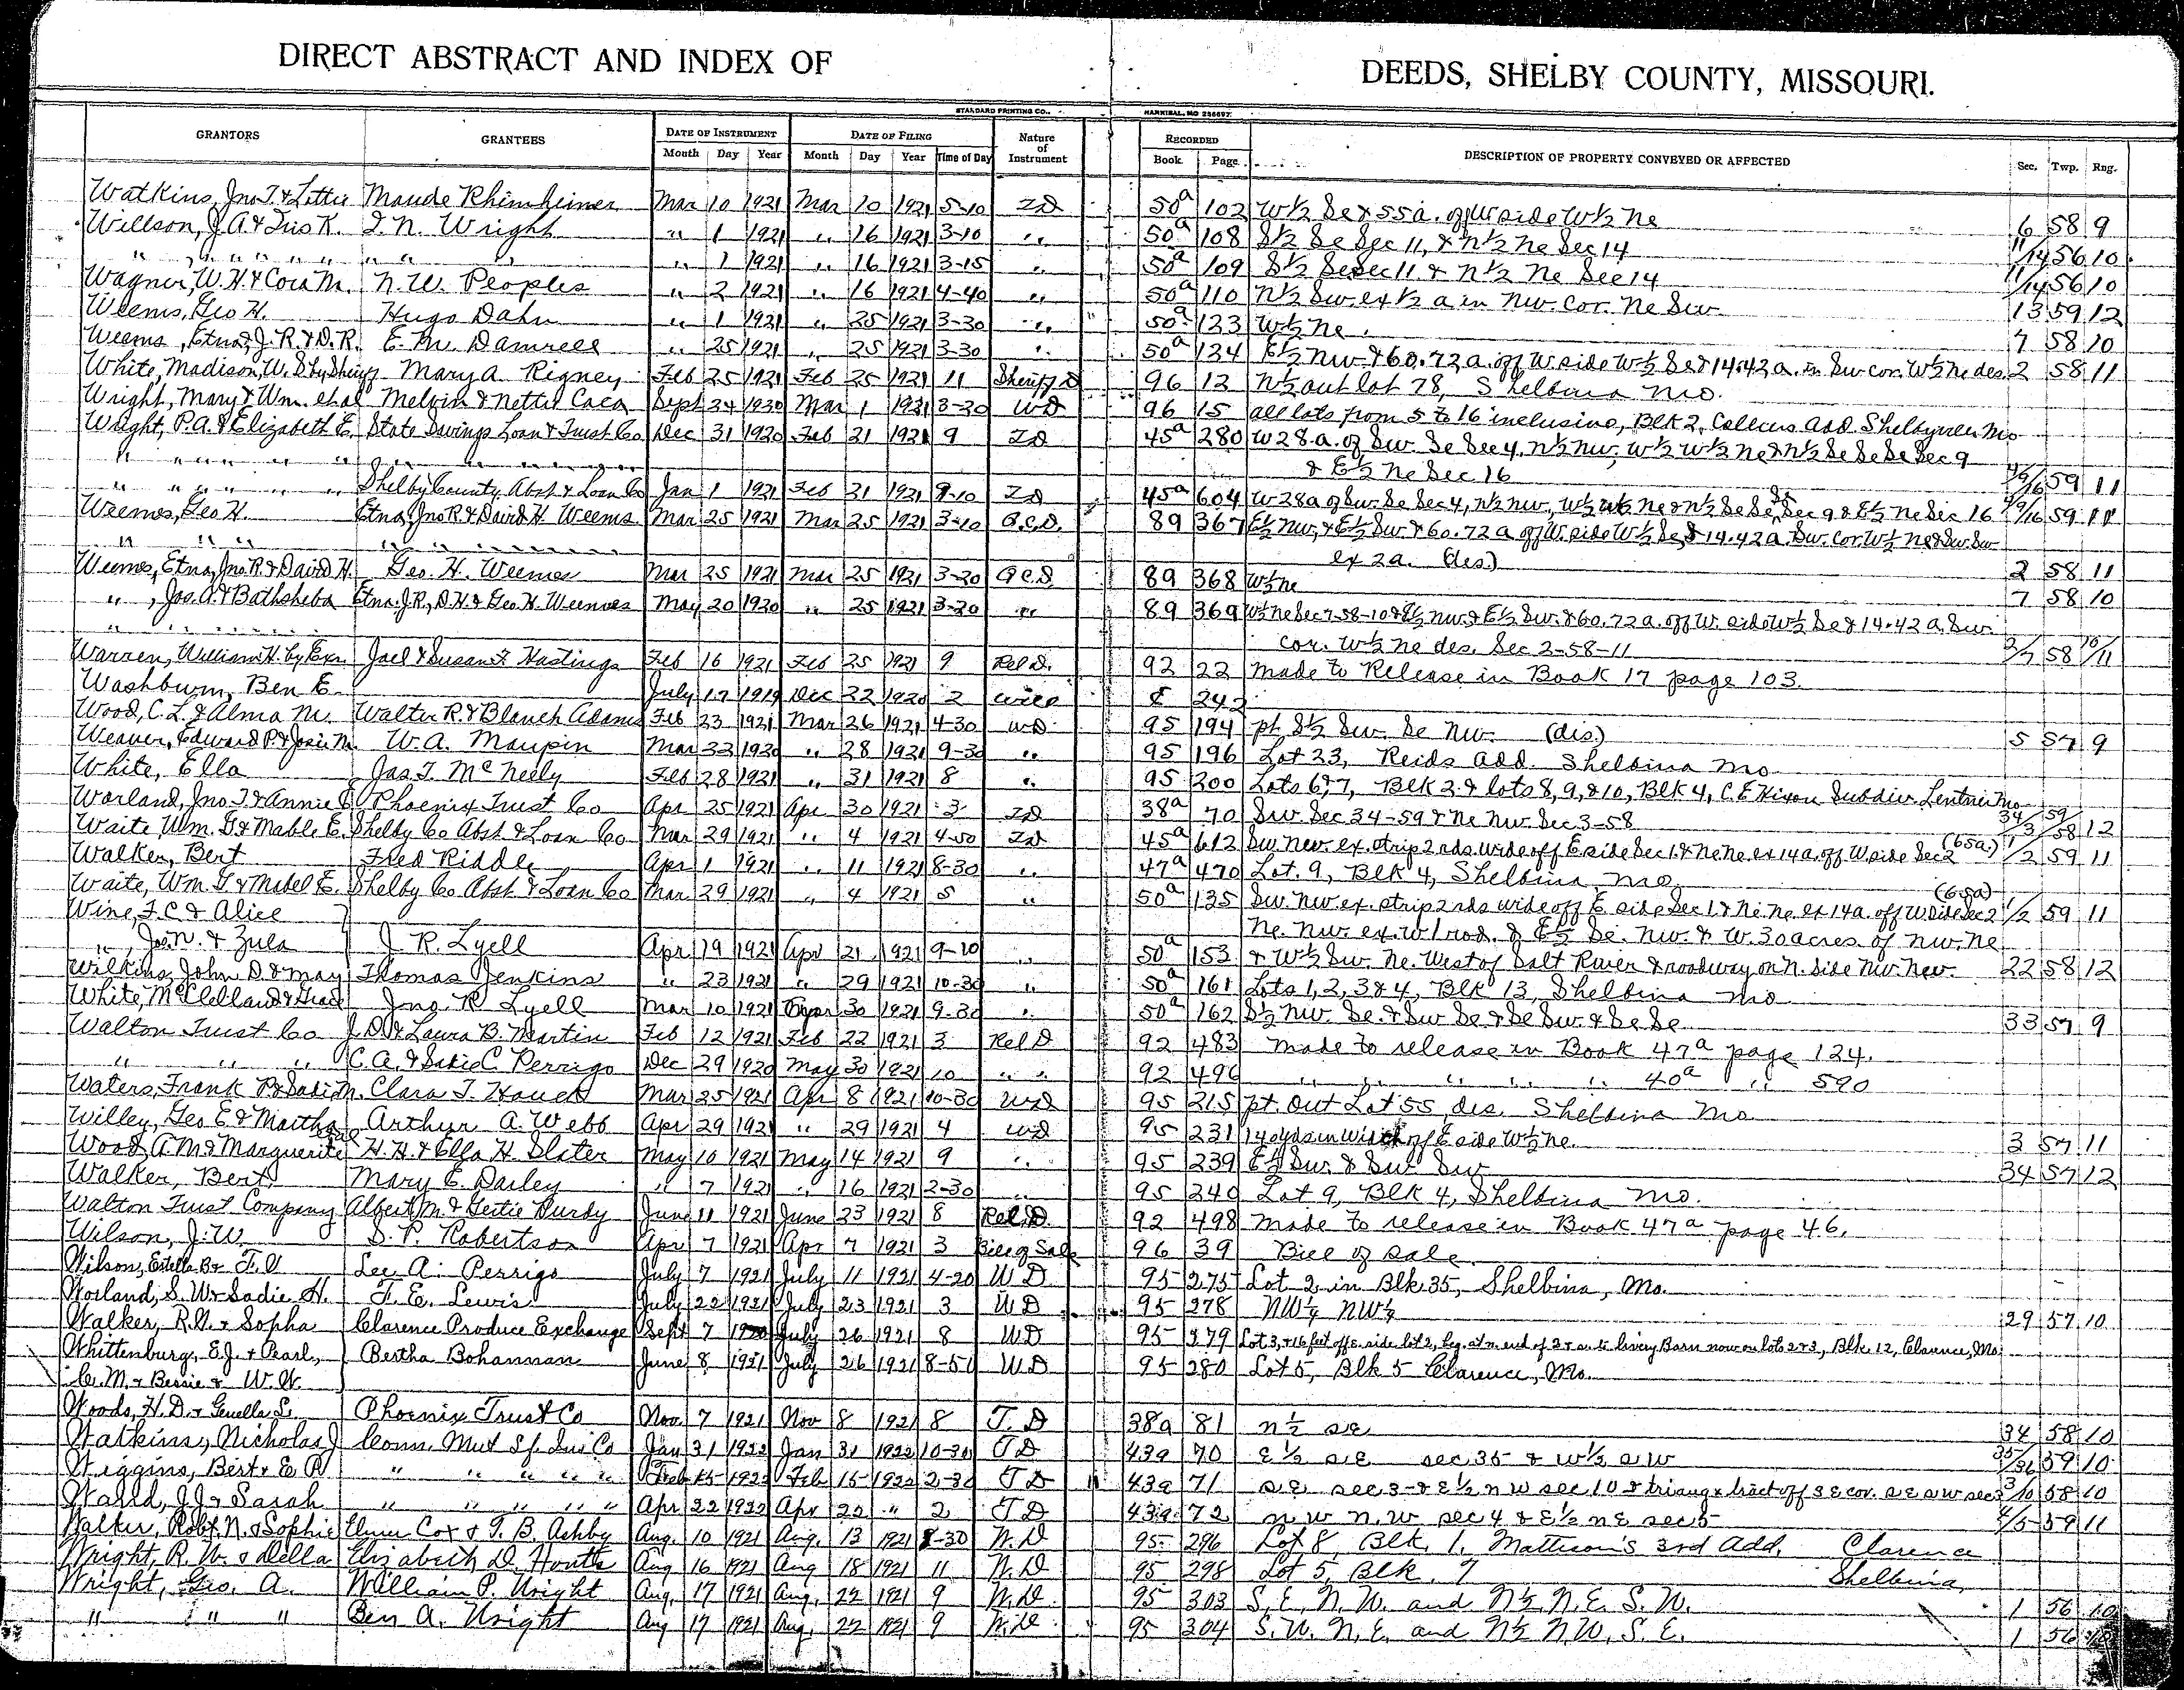 DIRECT ABSTRACT AND INDEX OF DEEDS, SHELBY COUNTY, MISSOURI.
STANDARD PRINTING CO., HANNIBAL, MO
GRANTORS GRANTEES DATE OF INSTRUMENT DATE OF FILING Nature of Instrument RECORDED DESCRIPTION OF PROPERTY CONVEYED OR AFFECTED Sec. Twp. Rng.
Month Day Year Month Day Year Time of Day Book Page
Watkins, Jno T. & Lettie Maude Rhimheimer Mar 10 1921 Mar 10 1921 5-10 TD 50a 102 W½ Se & 55a. off W side W½ Ne 6 58 9
Willson, J A & Inis K. I. N. Wright " 1 1921 " 16 1921 3-10 " 50a 108 S½ Se Sec 11, & N½ Ne Sec 14 11/14 56 10
" " " " " " " " " 1 1921 " 16 1921 3-15 " 50a 109 S½ Se Sec 11 & N½ Ne Sec 14 11/14 56 10
Wagner, W. H. & Cora M. N. W. Peoples " 2 1921 " 16 1921 4-40 " 50a 110 N½ Sw. ex ½ a in Nw. cor. Ne Sw 13 59 12
Weems, Geo H. Hugo Dahn " 1 1921 " 25 1921 3-30 " 50a 123 W½ Ne. 7 58 10
Weems, Etna, J. R. & D. R. E. M. Damrell " 25 1921 " 25 1921 3-30 " 50a 124 E½ Nw & 60.72 a. off W. side W½ Se & 14.42 a. in Sw cor. W½ Ne des. 2 58 11
White, Madison, W. S by Sheriff Mary A. Rigney Feb 25 1921 Feb 25 1921 11 Sheriff D 96 12 N½ out lot 78, Shelbina Mo.
Wright, Mary & Wm. et al Melvin & Nettie Sept 24 1920 Mar 1 1921 3-30 WD 96 15 all lots from 5 to 16 inclusive, Blk 2, add. Shelbyville Mo
Wright, P. A. & Elizabeth E. State Savings Loan & Trust Co Dec 31 1920 Feb 21 1921 9 TD 45a 280 W 28 a. of Sw. Se Sec 4, N½ Nw, W½ W½ Ne & N½ Se Se Se Sec 9
" " " " " " " " " " & E½ Ne Sec 16 4/9/16 59 11
" " " " " " Shelby County Abst & Loan Co Jan 1 1921 Feb 21 1921 9-10 TD 45a 604 W 28a of Sw. Se Sec 4, N½ Nw., W½ W½ Ne & N½ Se Se Se Sec 9 & E½ Ne Sec 16 4/9/16 59 11
Weems, Geo H. Etna, Jno R & David H Weems Mar 25 1921 Mar 25 1921 3-10 Q.C.D. 89 367 E½ Nw, & E½ Sw. & 60.72 a off W. side W½ Se, & 14.42 a. Sw. cor. W½ Ne & Sw. Sw
" " " " " " " " ex 2a. (des) 2 58 11
Weems, Etna, Jno. R & David H. Geo. H. Weems Mar 25 1921 Mar 25 1921 3-20 Q C.D 89 368 W½ Ne 7 58 10
" , Jas. A. & Bathsheba Etna, J. R., D. H. & Geo. H. Weems May 20 1920 " 25 1921 3-20 " 89 369 W½ Ne Sec 7-58-10 & E½ Nw. & E½ Sw. & 60.72 a. off W. side W½ Se & 14.42 a. Sw.
" " " " cor. W½ Ne des. Sec 2-58-11 2/7 58 10/11
Warren, William H. by Exr. Joel & Susan F Hastings Feb 16 1921 Feb 25 1921 9 Rel D. 92 22 Made to Release in Book 17 page 103.
Washburn, Ben E July 17 1919 Dec 22 1920 2 Will 242
Wood, C. L. & Alma M. Walter R. & Blanch Adams Feb 23 1921 Mar 26 1921 4-30 WD 95 194 pt. S½ Sw. Se Nw. (des.) 5 57 9
Weaver, Edward P. & Josie M. W. A. Maupin Mar 22 1920 " 28 1921 9-30 " 95 196 Lot 23, Reids add. Shelbina Mo
White, Ella Jas. T. McNeely Feb 28 1921 " 31 1921 8 " 95 200 Lots 6, 7, Blk 2 & lots 8, 9, & 10, Blk 4, C. E Hixon Subdiv. Lentner Mo
Worland, Jno. T. & Annie E Phoenix Trust Co Apr 25 1921 Apr 30 1921 3 TD 38a 70 Sw Sec 34-59 & Ne Nw Sec 3-58 34/3 59/58 12
Waite Wm. G & Mable E. Shelby Co Abst & Loan Co Mar 29 1921 " 4 1921 4-50 TD 45a 612 Sw. Nw. ex. strip 2 rds wide off E side Sec 1. & Ne Ne ex 14 a. off W side Sec 2 (65a) 1/2 59 11
Walker, Bert Fred Riddle Apr 1 1921 " 11 1921 8-30 " 47a 470 Lot. 9, Blk 4, Shelbina Mo
Waite, Wm G & Mabel E. Shelby Co Abst & Loan Co Mar. 29 1921 " 4 1921 5 " 50a 135 Sw Nw ex. strip 2 rds wide off E side Sec 1. & Ne. Ne. ex 14 a. off W side Sec 2 (65a) 1/2 59 11
Wine, F. C. & Alice Ne. Nw. ex. W 1 rod. & E½ Se. Nw. & W. 30 acres. of Nw. Ne
" , Jos. N. & Zula J. R. Lyell Apr 19 1921 Apr 21 1921 9-10 " 50a 153 & W½ Sw. Ne. West of Salt River & roadway on N. side Nw. New. 22 58 12
Wilkins, John D. & May Thomas Jenkins " 23 1921 " 29 1921 10-30 " 50a 161 Lots 1, 2, 3 & 4, Blk 13, Shelbina Mo
White, McClelland & Grace Jno. R Lyell Mar 10 1921 Apr 30 1921 9-30 " 50a 162 S½ Nw. Se. & Sw Se & Se Sw. & Se Se 33 57 9
Walton Trust Co J. D. & Laura B. Martin Feb 12 1921 Feb 22 1921 3 Rel D 92 483 Made to release in Book 47a page 124.
" " " C. A. & Sadie C Perrigo Dec 29 1920 May 30 1921 10 " " 92 496 " " " " " 40a " 590
Waters, Frank P. & Sadie M. Clara T. Houck Mar 25 1921 Apr 8 1921 10-30 WD 95 215 pt. Out Lot 55, des. Shelbina Mo
Willey, Geo E & Martha Arthur A. Webb Apr 29 1921 " 29 1921 4 WD 95 231 off E side W½ Ne. 3 57 11
Wood, A. M. & Marguerite et al H. H. & Ella H. Slater May 10 1921 May 14 1921 9 " 95 239 E½ Sw. & Sw Sw 34 57 12
Walker, Bert. Mary E. Dailey " 7 1921 " 16 1921 2-30 " 95 240 Lot 9, Blk 4, Shelbina Mo.
Walton Trust Company Albert M. & Gertie Purdy June 11 1921 June 23 1921 8 Rel. D. 92 498 Made to release in Book 47a page 46.
Wilson, J. W. S. P. Robertson Apr 7 1921 Apr 7 1921 3 Bill of Sale 96 39 Bill of sale
Wilson, Estella B & F. V Lee A. Perrigo July 7 1921 July 11 1921 4-20 W D 95 275 Lot 2 in Blk 35, Shelbina, Mo.
Worland, S. W. & Sadie H. T. E. Lewis July 22 1921 July 23 1921 3 W D 95 278 NW¼ NW¼ 29 57 10
Walker, R. N. & Sopha Clarence Produce Exchange Sept 7 1920 July 26 1921 8 W D 95 279 Lot 3, & 16 feet off e. side lot 2, beg. at n. end of Livery Barn now on lots 2 & 3, Blk. 12, Clarence, Mo.
Whittenburg, E. J. & Pearl, Bertha Bohannan June 8 1921 July 26 1921 8-50 W D 95 280 Lot 5, Blk 5 Clarence, Mo.
C. M. & Bessie & W. W.
Woods, H. D. & Genella S. Phoenix Trust Co Nov. 7 1921 Nov 8 1921 8 T. D 38a 81 n½ s.e. 34 58 10
Watkins, Nicholas J Conn. Mut Lf. Ins Co Jan 31 1922 Jan 31 1922 10-30 T D 43a 70 e½ s.e. sec 35 & w½ s.w 35/36 59 10
Wiggins, Bert & E. R " " " " " Feb 15 1922 Feb 15 1922 2-30 T D 43a 71 s.e. sec 3 & e½ n w sec 10 & triang tract off s e cor. s e s w sec 3 3/10 58 10
Ward, J. J. & Sarah " " " " " Apr 22 1922 Apr 22 " 2 T D 43a 72 n w n. w sec 4 & e½ n e sec 5 4/5 59 11
Walker, Robt. N. & Sophie Elmer Cox & G. B. Ashby Aug. 10 1921 Aug. 13 1921 8-30 W. D 95 296 Lot 8, Blk. 1. Mattison's 3rd Add, Clarence
Wright, R. W. & Della Elizabeth D. Houtz Aug 16 1921 Aug 18 1921 11 W. D 95 298 Lot 5, Blk. 7 Shelbina,
Wright, Geo. A. William P. Wright Aug. 17 1921 Aug. 22 1921 9 W. D 95 303 S. E. N. W. and N½ N. E. S. W. 1 56 10
" " " Ben A. Wright Aug 17 1921 Aug. 22 1921 9 W. D 95 304 S. W. N. E. and N½ N W. S. E. 1 56 10